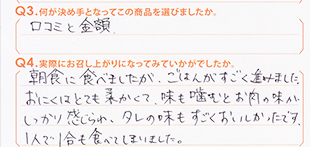 Q3.何が決め手となってこの商品を選びましたか。
口コミと金額
Q4.実際にお召し上がりになってみていかがでしたか。
朝食に食べましたが、ごはんがすごく進みました。
おにくはとても柔かくて、味も噛むとお肉の味が
しっかり感じられ、タレの味もすごくおいしかったです。
1人で1合も食べてしまいました。